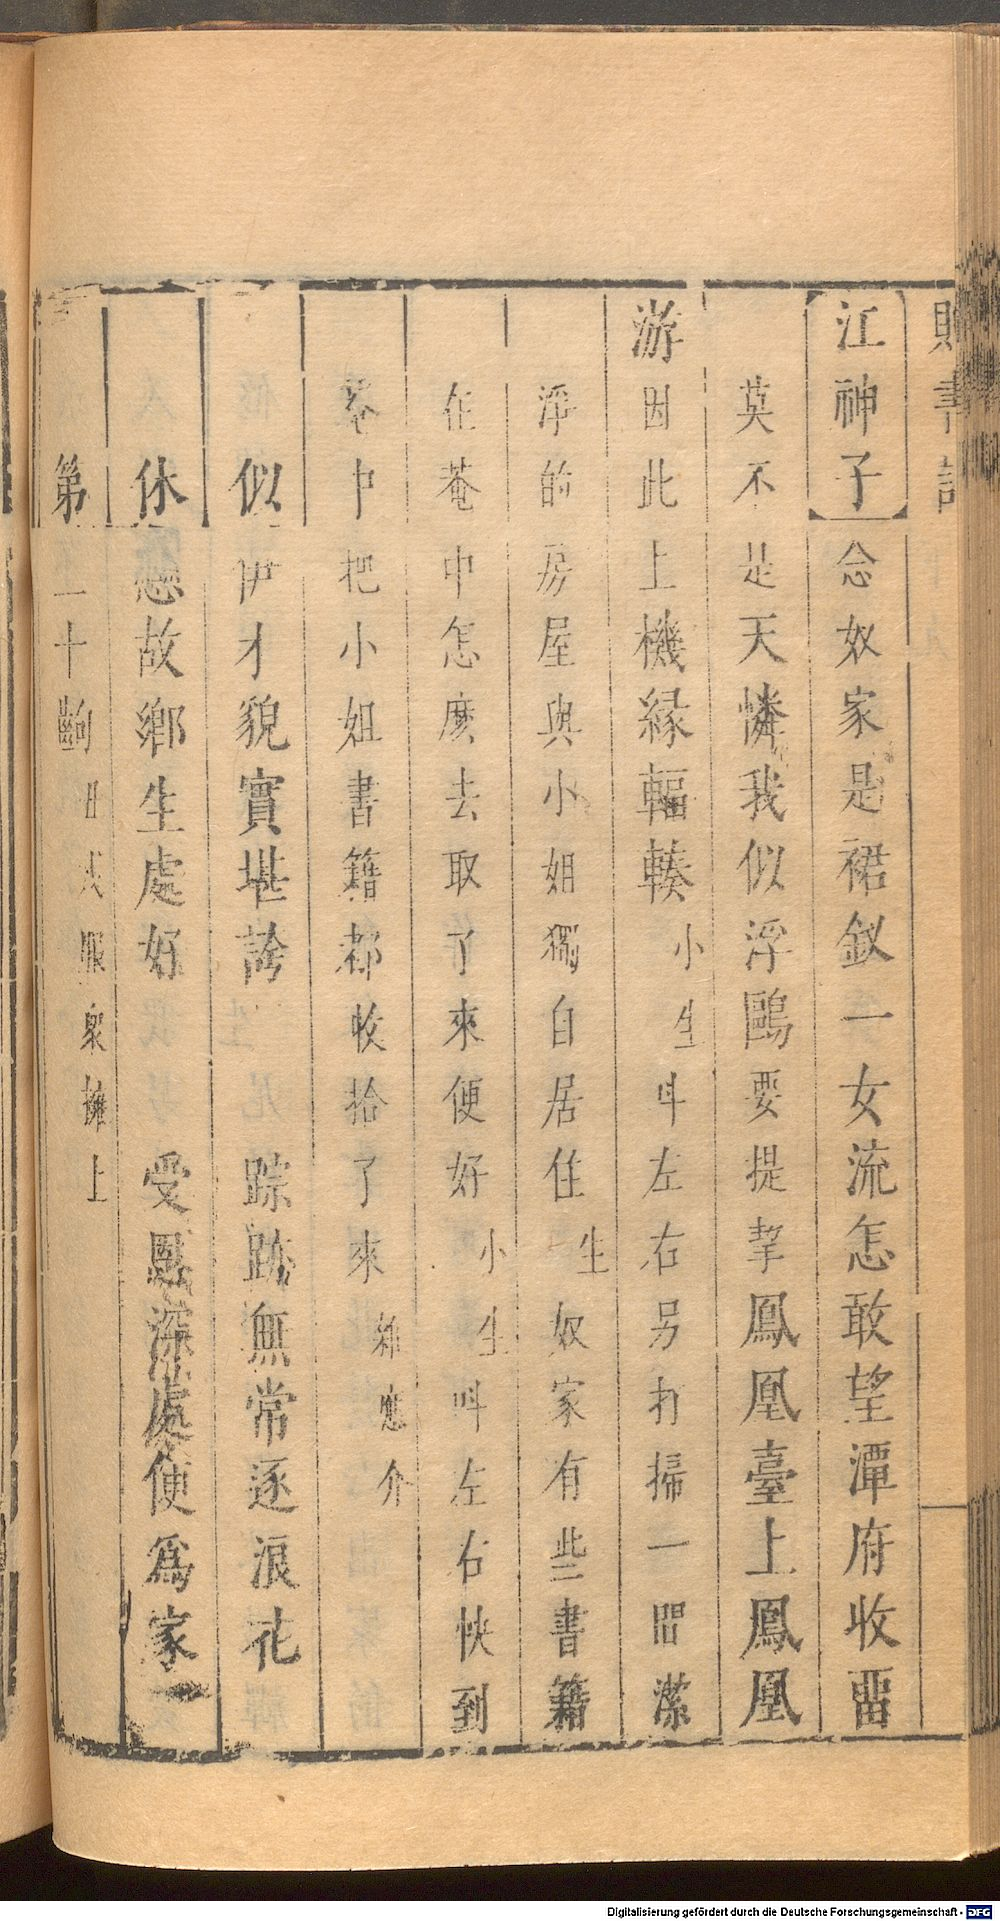 書記
江神子念奴家是裙釵一女流怎敢望潭府收畱
莫不是天憐我似浮鷗要提挈鳳凰臺上鳳凰
游因此上機緣輻輳小生呌左右另打掃一間潔
淨的房屋與小姐獨自居住生奴家有些書籍
在菴中怎麽去取了來便好小生呌左右快到
菴中把小姐書籍都收拾了來雜應介
似伊才貌實堪誇踪跡無常逐浪花
休戀故鄉生處好受恩深處便爲家
第二十齣日戎服衆擁上
Digitalisierung gefördert durch die Deutsche Forschungsgemeinschaft - DFG